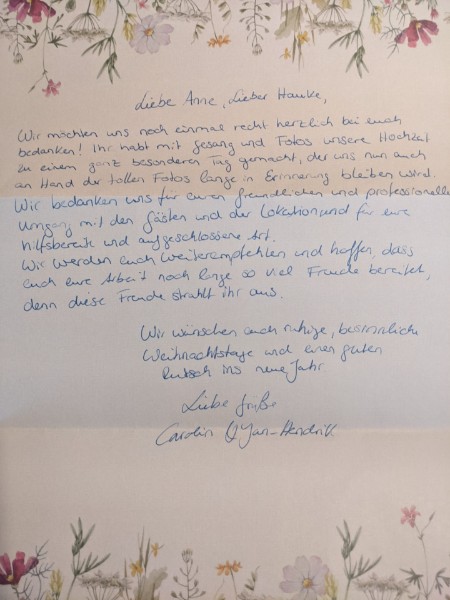 Liebe Anne, Lieber Hauke,
Wir möchten uns noch einmal recht herzlich bei euch
bedanken! Ihr habt mit Gesang und Fotos unsere Hochzeit
zu einem ganz besonderen Tag gemacht, der uns nun auch
an Hand der tollen Fotos lange in Erinnerung bleiben wird.
Wir bedanken uns für euren freundlichen und professionellen
Umgang mit den Gästen und der Location und für eure
hilfsbereite und aufgeschlossene Art.
Wir werden euch weiterempfehlen und hoffen, dass
euch eure Arbeit noch lange so viel Freude bereitet,
denn diese Freude strahlt ihr aus.
Wir wünschen euch ruhige, besinnliche
Weihnachtstage und einen guten
Rutsch ins neue Jahr
Liebe Grüße
Carolin & Jan-Hendrik